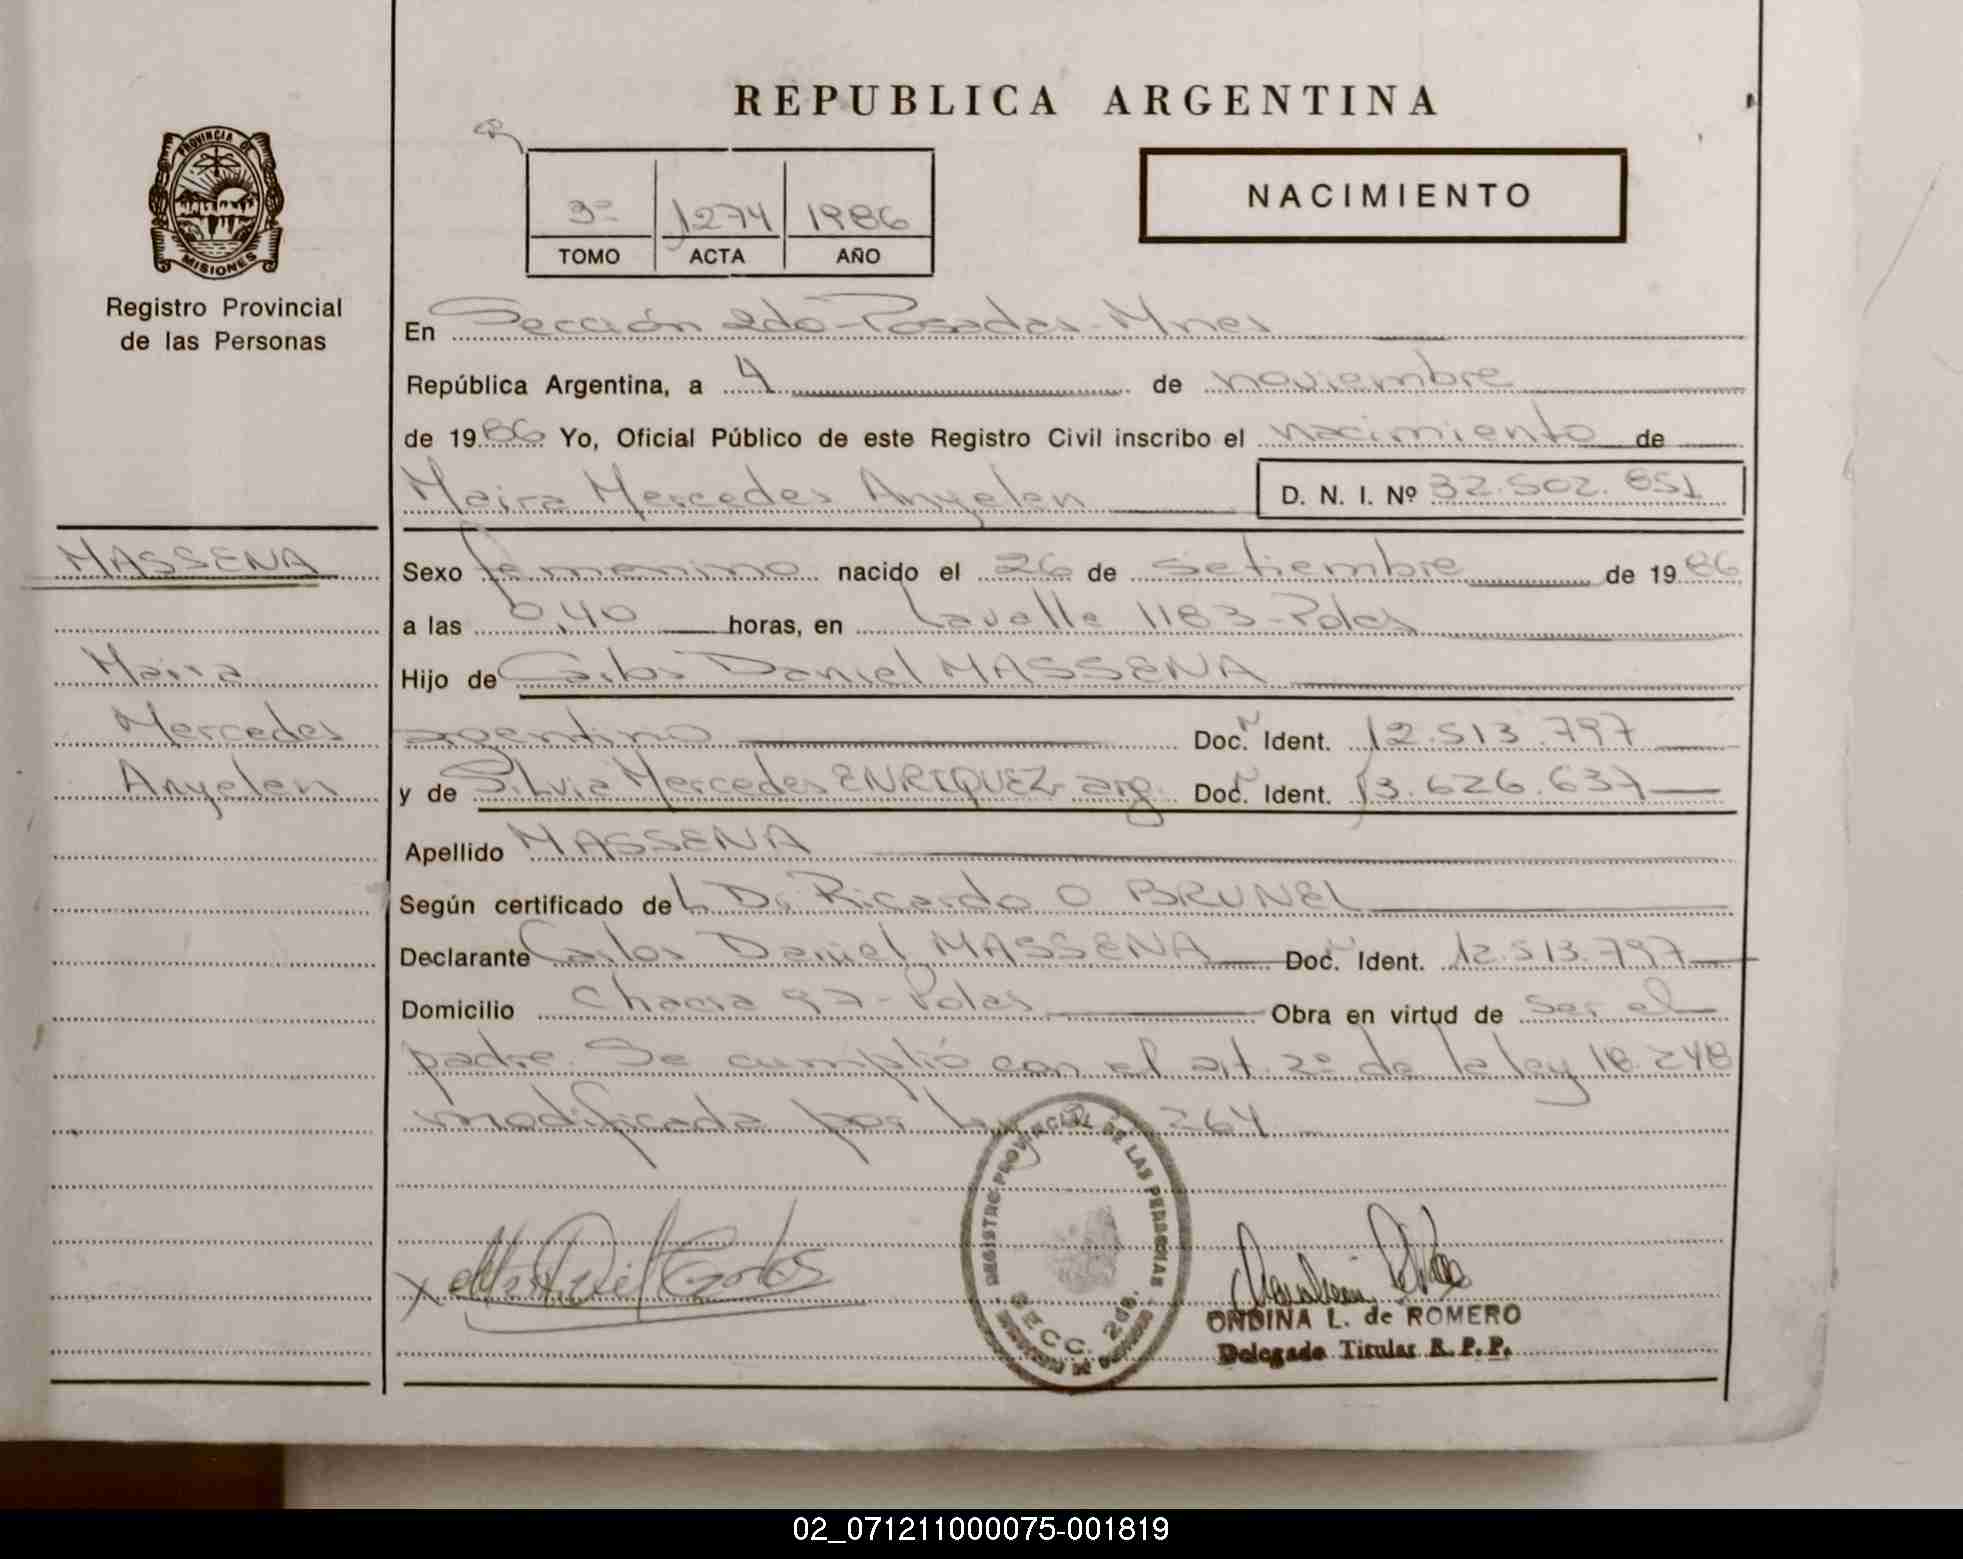 REPUBLICA ARGENTINA
PROVINCIA DE
MISIONES
Registro Provincial
de las Personas
3º 1274 1986
TOMO ACTA AÑO
NACIMIENTO
En Sección 2da-Posadas-Mnes
República Argentina, a 4 de noviembre
de 1986 Yo, Oficial Público de este Registro Civil inscribo el nacimiento de
Maira Mercedes Anyelen D. N. I. Nº 32.502.851
MASSENA
Maira
Mercedes
Anyelen
Sexo femenino nacido el 26 de setiembre de 1986
a las 0,40 horas, en Lavalle 1183-Pdas
Hijo de Carlos Daniel MASSENA
argentino Doc. Ident. 12.513.797
y de Silvia Mercedes ENRIQUEZ arg. Doc. Ident. 13.626.637
Apellido MASSENA
Según certificado de L Dr Ricardo O BRUNEL
Declarante Carlos Daniel MASSENA Doc. Ident. 12.513.797
Domicilio Chacra 97-Pdas Obra en virtud de ser el
padre. Se cumplió con el art. 2º de la ley 18.248
modificada por 264
REGISTRO PROVINCIAL DE LAS PERSONAS
SECC. 2da.
ONDINA L. de ROMERO
Delegado Titular R. P. P.
02_071211000075-001819